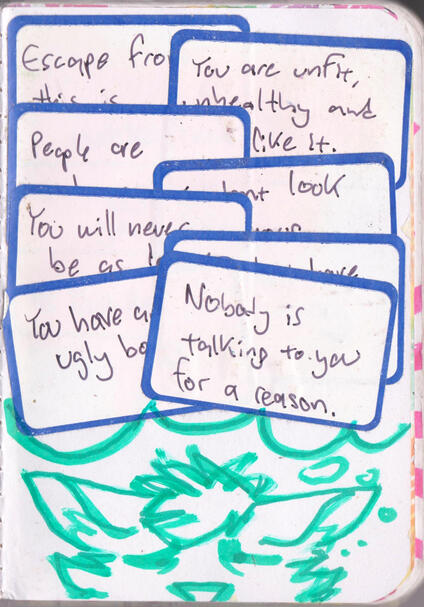 Escape fro
this is
You are unfit,
unhealthy and
like it.
People are
look
You will never
be as
have
You have a
ugly bo
Nobody is
talking to you
for a reason.